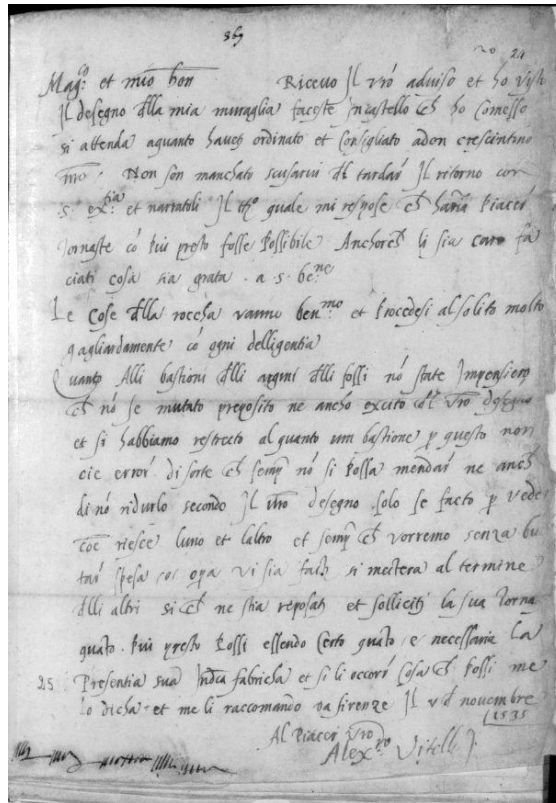 369
20 24
Mag.co et mio hon Ricevo Il vro adviso et ho visto
Il desegno dlla mia muraglia faceste Incastello ch ho Comesso
si attenda aquanto havete ordinato et Consigliato adon crescintino
mo. Non son manchato scusarvi dl tardar Il ritorno con
s. ex.tia et narratoli Il tto quale mi respose ch haria piacer
tornaste có piu presto fosse possibile Anchorch li sia caro fa
ciati cosa sia grata . a s. be.ne
Le Cose dlla roccha vanno ben.mo et procedesi alsolito molto
gagliardamente có ogni delligentia
Quanto Alli bastioni dlli argini dlli fossi nó state Impensiero
ch nó se mutato preposito ne ancho excito dl vro desegno
et si habbiamo restrecto al quanto um bastione p questo non
cie error di sorte ch semp nó si possa mendar ne anch
di nó ridurlo secondo Il vro desegno solo se facto p vede
riesce luno et laltro et semp ch vorremo senza bu
tar spesa opa vi sia fatta si mectera al termine
dlli altri si ch ne stia reposati et solliciti la sua torna
quato piu presto possi essendo Certo quato e necessaria La
25 Presentia sua fabricha et si li occorr Cosa ch possi me
lo dicha et me li raccomando va firenze Il v d novembre
1535
Al Piacer vro
Alex.ro Vitelli